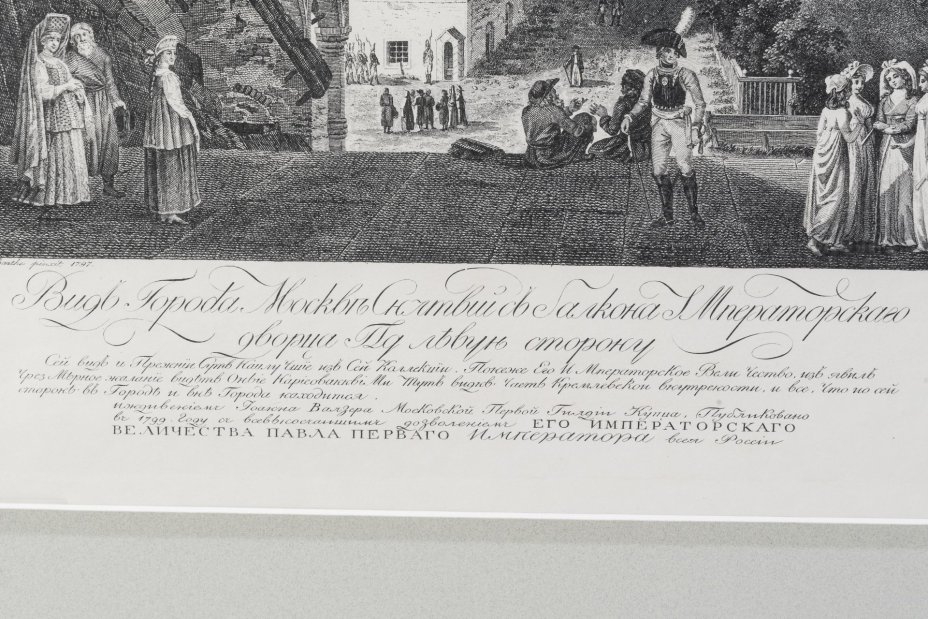 pinxit 1797
Видъ Города Москвы Снятый съ Балкона Императорскаго
дворца По лѣвую сторону
Сей видъ и Прежній Суть Наилу Чшіе изъ Сей Коллекціи. Понеже Его И мператорское Вели Чество, изъ явилъ
Чрез Мѣрное желаніе видѣть Оныя Нарисованны Ми Тутъ видна Часть Кремлевской внутренности, и все, Что по сей
сторонѣ въ Городѣ и внѣ Города находится.
иждивеніемъ Іоанна Валзера Московской Первой Гилдіи Купца, Публиковано
въ 1799 Году съ всевысочаишимъ дозволеніемъ ЕГО ИМПЕРАТОРСКАГО
ВЕЛИЧЕСТВА ПАВЛА ПЕРВАГО Императора всея Россіи